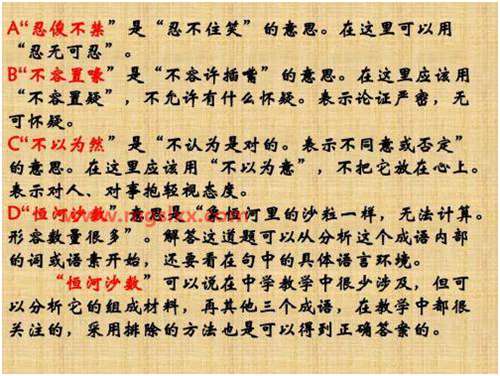 A“忍俊不禁”是“忍不住笑”的意思。在这里可以用
“忍无可忍”。
B“不容置喙”是“不容许插嘴”的意思。在这里应该用
“不容置疑”，不允许有什么怀疑。表示论证严密，无
可怀疑。
C“不以为然”是“不认为是对的。表示不同意或否定”
的意思。在这里应该用“不以为意”，不把它放在心上。
表示对人、对事抱轻视态度。
D“恒河沙数”意思是“象恒河里的沙粒一样，无法计算。
形容数量很多”。解答这道题可以从分析这个成语内部
的词或语素开始，还要看在句中的具体语言环境。
“恒河沙数”可以说在中学教学中很少涉及，但可
以分析它的组成材料，再其他三个成语，在教学中都很
关注的，采用排除的方法也是可以得到正确答案的。